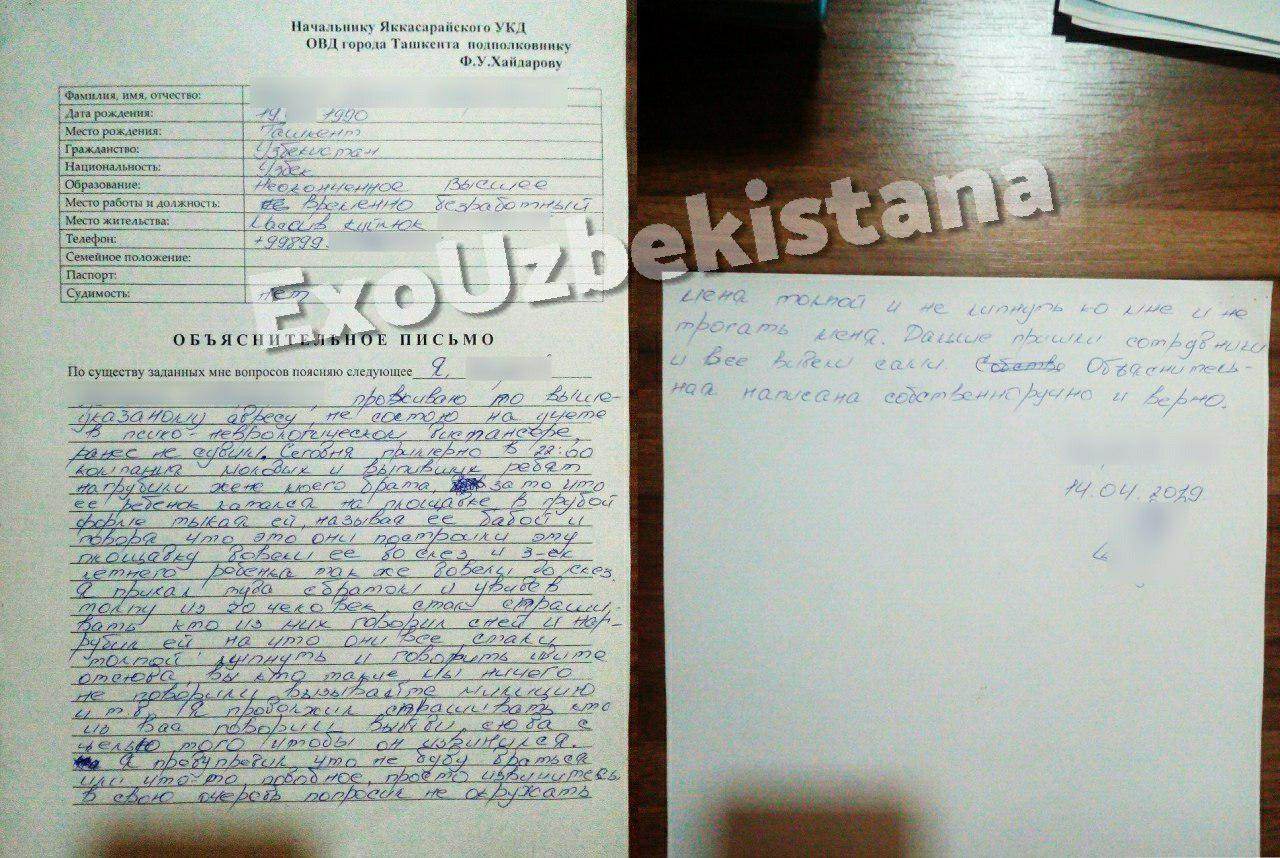 Начальнику Яккасарайского УКД
ОВД города Ташкента подполковнику
Ф.У.Хайдарову
Фамилия, имя, отчество:
Дата рождения: 19. 1990
Место рождения: Ташкент
Гражданство: Узбекистан
Национальность: Узбек
Образование: Неоконченное высшее
Место работы и должность: временно безработный
Место жительства: Массив куйлюк
Телефон: +99899.
Семейное положение:
Паспорт:
Судимость: нет
ExoUzbekistana
ОБЪЯСНИТЕЛЬНОЕ ПИСЬМО
По существу заданных мне вопросов поясняю следующее Я,
проживаю по выше-
указаному адресу, не состою на учете
в психо-неврологическом диспансере,
ранее не судим. Сегодня примерно в 22:00
компания молодых и выпивших ребят
нагрубили жене моего брата за то что
ее ребенок катался на площадке в грубой
форме тыкая ей, называя ее бабой и
говоря что это они построили эту
площадку довели ее до слез и 3-ех
летнего ребенка так же довели до слез.
Я приехал туда с братом и увидев
толпу из 20 человек, стал спраши-
вать кто из них говорил с ней и наг-
рубил ей на что они все стали
толпой липнуть и говорить идите
отсюда, вы кто такие, мы ничего
не говорили вызывайте милицию
и т.д. Я продолжил спрашивать кто
из вас говорил выйди сюда с
целью того чтобы он извинился.
Я предупредил что не буду драться
или что-то подобное, просто извинитесь
в свою очередь попросил не окружать
меня толпой и не липнуть ко мне и не
трогать меня. Дальше пришли сотрудники
и все видели сами. Объяснитель-
ная написана собственноручно и верно.
14.04.2019